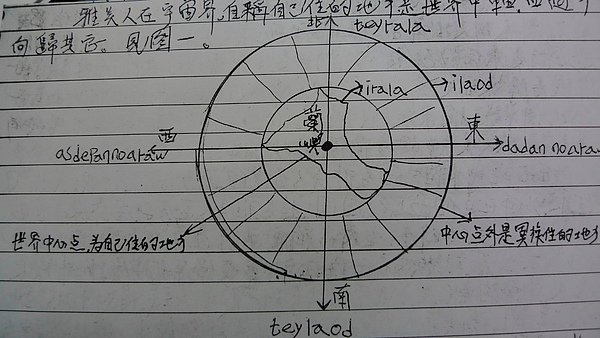 雅美人在宇宙界,自稱自己住的地方是世界中軸
向歸其它。見圖一。
北
teyrala
irala
ilaod
蘭嶼
西
東
asdepannoaraw
dadannoaraw
世界中心点,為自己住的地方
中心点外是異族住的地方
南
teylaod